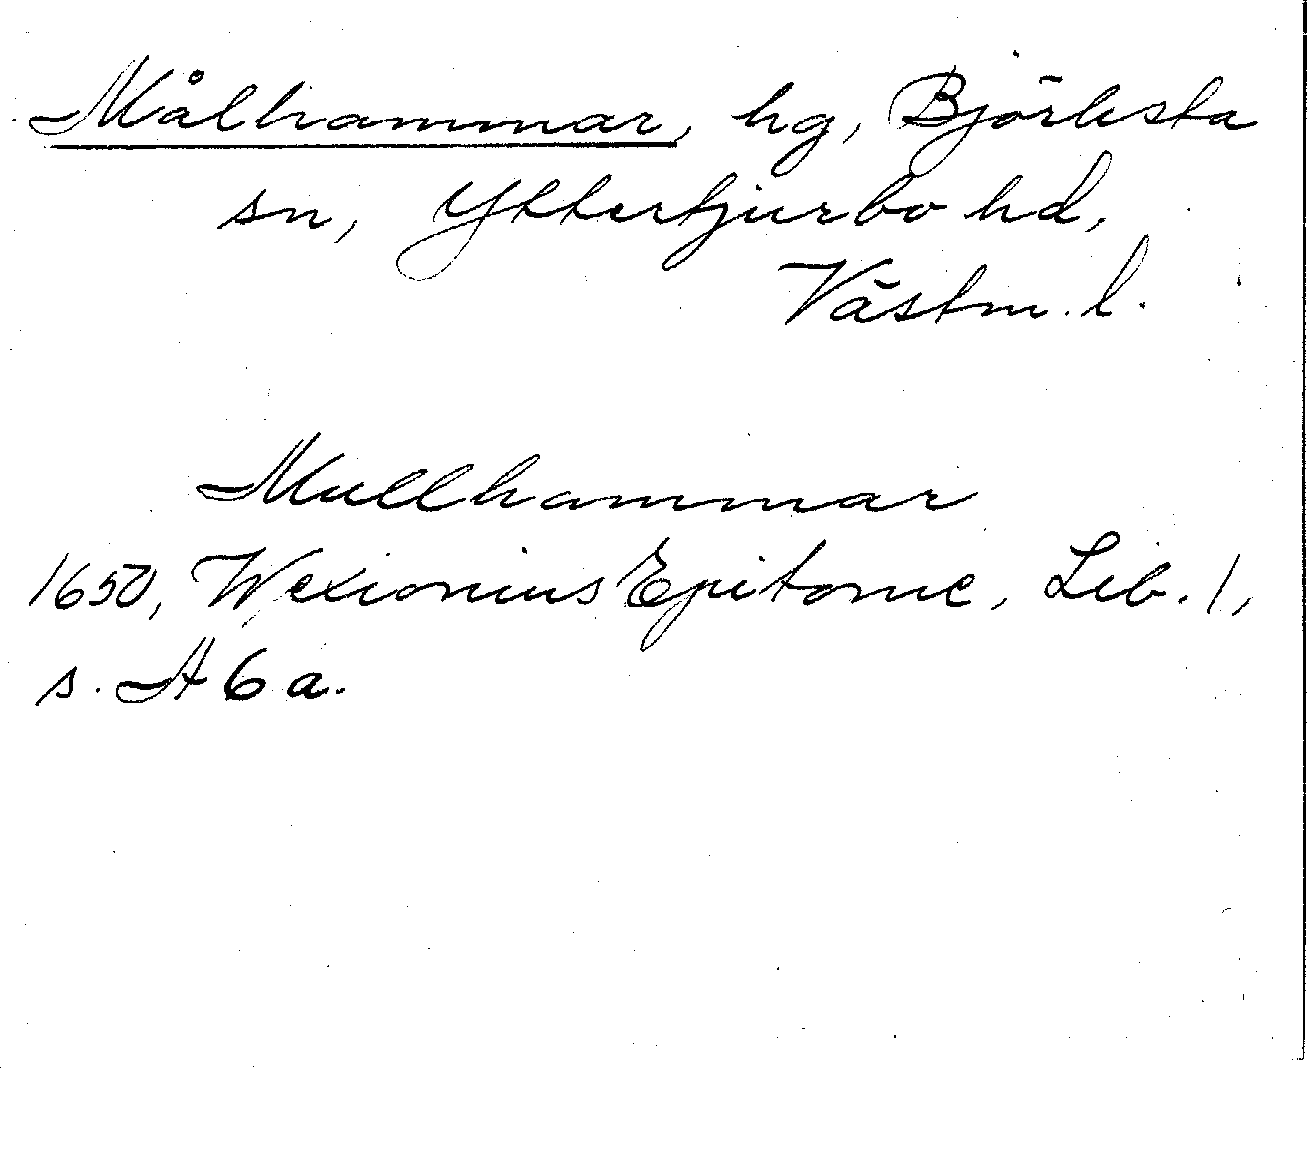 Målhammar, hg, Björksta
sn, Yttertjurbo hd,
Västm. l.
Mullhammar
1650, Wexionius Epitome, Lib. 1,
s. A 6 a.